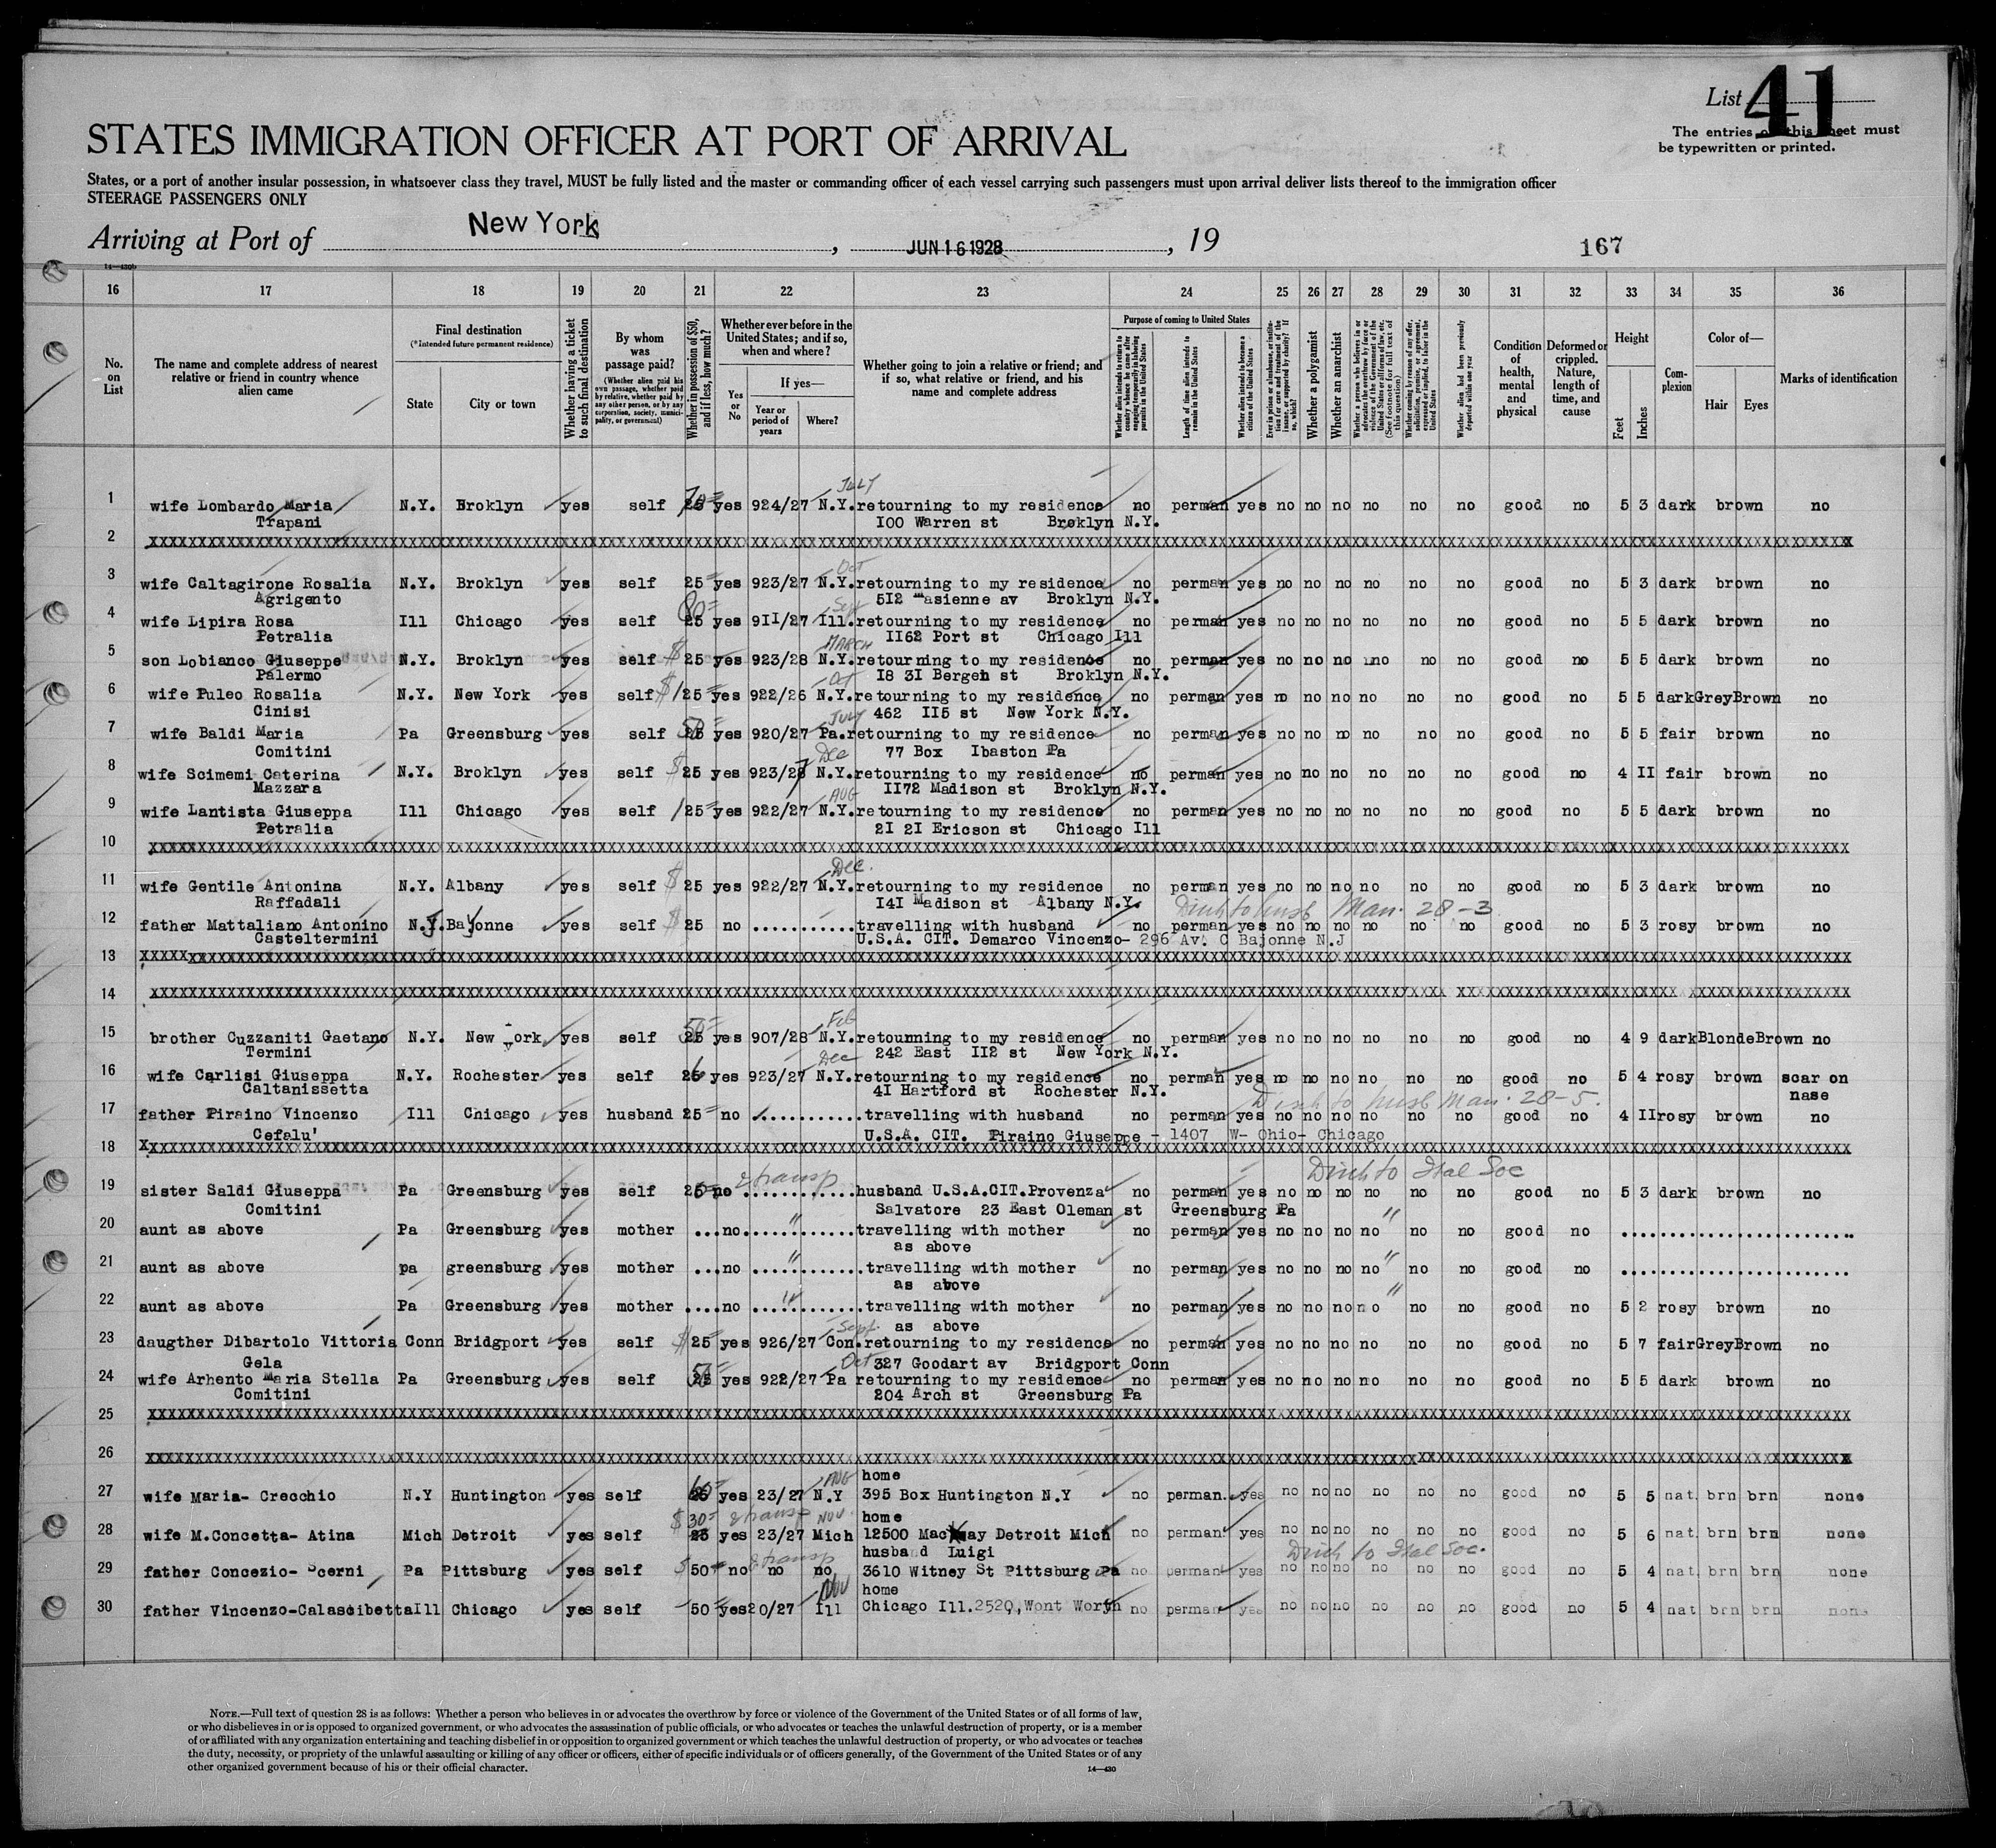 List 41
The entries on this sheet must
be typewritten or printed.
STATES IMMIGRATION OFFICER AT PORT OF ARRIVAL
States, or a port of another insular possession, in whatsoever class they travel, MUST be fully listed and the master or commanding officer of each vessel carrying such passengers must upon arrival deliver lists thereof to the immigration officer
STEERAGE PASSENGERS ONLY
Arriving at Port of New York, JUN 16 1928, 19
167
14—430b
16 17 18 19 20 21 22 23 24 25 26 27 28 29 30 31 32 33 34 35 36
No. on List
The name and complete address of nearest relative or friend in country whence alien came
Final destination
(*Intended future permanent residence)
State
City or town
Whether having a ticket to such final destination
By whom was passage paid?
(Whether alien paid his own passage, whether paid by relative, whether paid by any other person, or by any corporation, society, municipality, or government)
Whether in possession of $50, and if less, how much?
Whether ever before in the United States; and if so, when and where?
Yes or No
If yes—
Year or period of years
Where?
Whether going to join a relative or friend; and if so, what relative or friend, and his name and complete address
Purpose of coming to United States
Whether alien intends to return to country whence he came after engaging temporarily in laboring pursuits in the United States
Length of time alien intends to remain in the United States
Whether alien intends to become a citizen of the United States
Ever in prison or almshouse, or institution for care and treatment of the insane, or supported by charity? If so, which?
Whether a polygamist
Whether an anarchist
Whether a person who believes in or advocates the overthrow by force or violence of the Government of the United States or all forms of law, etc. (See footnote for full text of this question)
Whether coming by reason of any offer, solicitation, promise, or agreement, expressed or implied, to labor in the United States
Whether alien had been previously deported within one year
Condition of health, mental and physical
Deformed or crippled. Nature, length of time, and cause
Height
Feet
Inches
Complexion
Color of—
Hair
Eyes
Marks of identification
1 wife Lombardo Maria N.Y. Broklyn yes self 25 yes 924/27 JULY N.Y. retourning to my residence no perman yes no no no no no no good no 5 3 dark brown no
Trapani 100 Warren st Broklyn N.Y.
2 xxxxxxxxxxxxxxxxxxxxxxxx
3 wife Caltagirone Rosalia N.Y. Broklyn yes self 25 yes 923/27 Oct N.Y. retourning to my residence no perman yes no no no no no no good no 5 3 dark brown no
Agrigento 5I2 masienne av Broklyn N.Y.
4 wife Lipira Rosa Ill Chicago yes self 80 25 yes 9II/27 Sept Ill. retourning to my residence no perman yes no no no no no no good no 5 5 dark brown no
Petralia II62 Port st Chicago Ill
5 son Lobianco Giuseppe N.Y. Broklyn yes self $ 25 yes 923/28 MARCH N.Y. retourning to my residence no perman yes no no no no no no good no 5 5 dark brown no
Palermo I8 3I Bergen st Broklyn N.Y.
6 wife Puleo Rosalia N.Y. New York yes self $ 125 yes 922/26 Oct N.Y. retourning to my residence no perman yes no no no no no no good no 5 5 dark Grey Brown no
Cinisi 462 II5 st New York N.Y.
7 wife Baldi Maria Pa Greensburg yes self 50 25 yes 920/27 JULY Pa. retourning to my residence no perman yes no no no no no no good no 5 5 fair brown no
Comitini 77 Box Ibaston Pa
8 wife Scimemi Caterina N.Y. Broklyn yes self $ 25 yes 923/27 Dec N.Y. retourning to my residence no perman yes no no no no no no good no 4 II fair brown no
Mazzara II72 Madison st Broklyn N.Y.
9 wife Lantista Giuseppa Ill Chicago yes self 125 yes 922/27 AUG N.Y. retourning to my residence no perman yes no no no no no no good no 5 5 dark brown no
Petralia 2I 2I Ericson st Chicago Ill
10 xxxxxxxxxxxxxxxxxxxxxxxx
11 wife Gentile Antonina N.Y. Albany yes self $ 25 yes 922/27 Dec. N.Y. retourning to my residence no perman yes no no no no no no good no 5 3 dark brown no
Raffadali I4I Madison st Albany N.Y. Disch to husb Man. 28-3
12 father Mattaliano Antonino N.J. Bayonne yes self $ 25 no ........... travelling with husband no perman yes no no no no no no good no 5 3 rosy brown no
Casteltermini U.S.A. CIT. Demarco Vincenzo- 296 Av. C Bajonne N.J
13 xxxxxxxxxxxxxxxxxxxxxxxx
14 xxxxxxxxxxxxxxxxxxxxxxxx
15 brother Cuzzaniti Gaetano N.Y. New York yes self 50 25 yes 907/28 Feb N.Y. retourning to my residence no perman yes no no no no no no good no 4 9 dark Blonde Brown no
Termini 242 East II2 st New York N.Y.
16 wife Carlisi Giuseppa N.Y. Rochester yes self 25 yes 923/27 Dec N.Y. retourning to my residence no perman yes no no no no no no good no 5 4 rosy brown scar on nase
Caltanissetta 4I Hartford st Rochester N.Y. Disch to husb Man. 28-5.
17 father Piraino Vincenzo Ill Chicago yes husband 25 no ............ travelling with husband no perman yes no no no no no no good no 4 II rosy brown no
Cefalu' U.S.A. CIT. Piraino Giuseppe - 1407 W- Ohio- Chicago
18 xxxxxxxxxxxxxxxxxxxxxxxx
Disch to Ital Soc
19 sister Saldi Giuseppa Pa Greensburg yes self 25 no & transp ............ husband U.S.A.CIT.Provenza no perman yes no no no no no no good no 5 3 dark brown no
Comitini Salvatore 23 East Oleman st Greensburg Pa
20 aunt as above Pa Greensburg yes mother ... no ..." ...... travelling with mother no perman yes no no no no " no no good no ........................
as above
21 aunt as above pa greensburg yes mother ... no ..." ...... travelling with mother no perman yes no no no no " no no good no ........................
as above
22 aunt as above Pa Greensburg yes mother .... no ..." ...... travelling with mother no perman yes no no no no " no no good no 5 2 rosy brown no
as above
23 daugther Dibartolo Vittoria Conn Bridgport yes self $ 25 yes 926/27 Sept. Con. retourning to my residence no perman yes no no no no no no good no 5 7 fair Grey Brown no
Gela 327 Goodart av Bridgport Conn
24 wife Arhento Maria Stella Pa Greensburg yes self 50 25 yes 922/27 Oct Pa retourning to my residence no perman yes no no no no no no good no 5 5 dark brown no
Comitini 204 Arch st Greensburg Pa
25 xxxxxxxxxxxxxxxxxxxxxxxx
26 xxxxxxxxxxxxxxxxxxxxxxxx
home
27 wife Maria- Crecchio N.Y Huntington yes self 25 yes 23/27 AUG N.Y 395 Box Huntington N.Y no perman. yes no no no no no no good no 5 5 nat. brn brn none
$ 30 & transp NOV. home
28 wife M.Concetta- Atina Mich Detroit yes self 25 yes 23/27 Mich 12500 Mackay Detroit Mich no perman yes no no no no no no good no 5 6 nat. brn brn none
husband Luigi Disch to Ital Soc.
29 father Concezio- Scerni Pa Pittsburg yes self $ 50 no & transp no no 3610 Witney St Pittsburg Pa no perman yes no no no no no no good no 5 4 nat. brn brn none
NOV home
30 father Vincenzo-Calascibetta Ill Chicago yes self 50 yes 20/27 Ill Chicago Ill.2520, Wont Worth no perman yes no no no no no no good no 5 4 nat brn brn none
NOTE.—Full text of question 28 is as follows: Whether a person who believes in or advocates the overthrow by force or violence of the Government of the United States or of all forms of law,
or who disbelieves in or is opposed to organized government, or who advocates the assassination of public officials, or who advocates or teaches the unlawful destruction of property, or is a member
of or affiliated with any organization entertaining and teaching disbelief in or opposition to organized government or which teaches the unlawful destruction of property, or who advocates or teaches
the duty, necessity, or propriety of the unlawful assaulting or killing of any officer or officers, either of specific individuals or of officers generally, of the Government of the United States or of any
other organized government because of his or their official character.
14—430